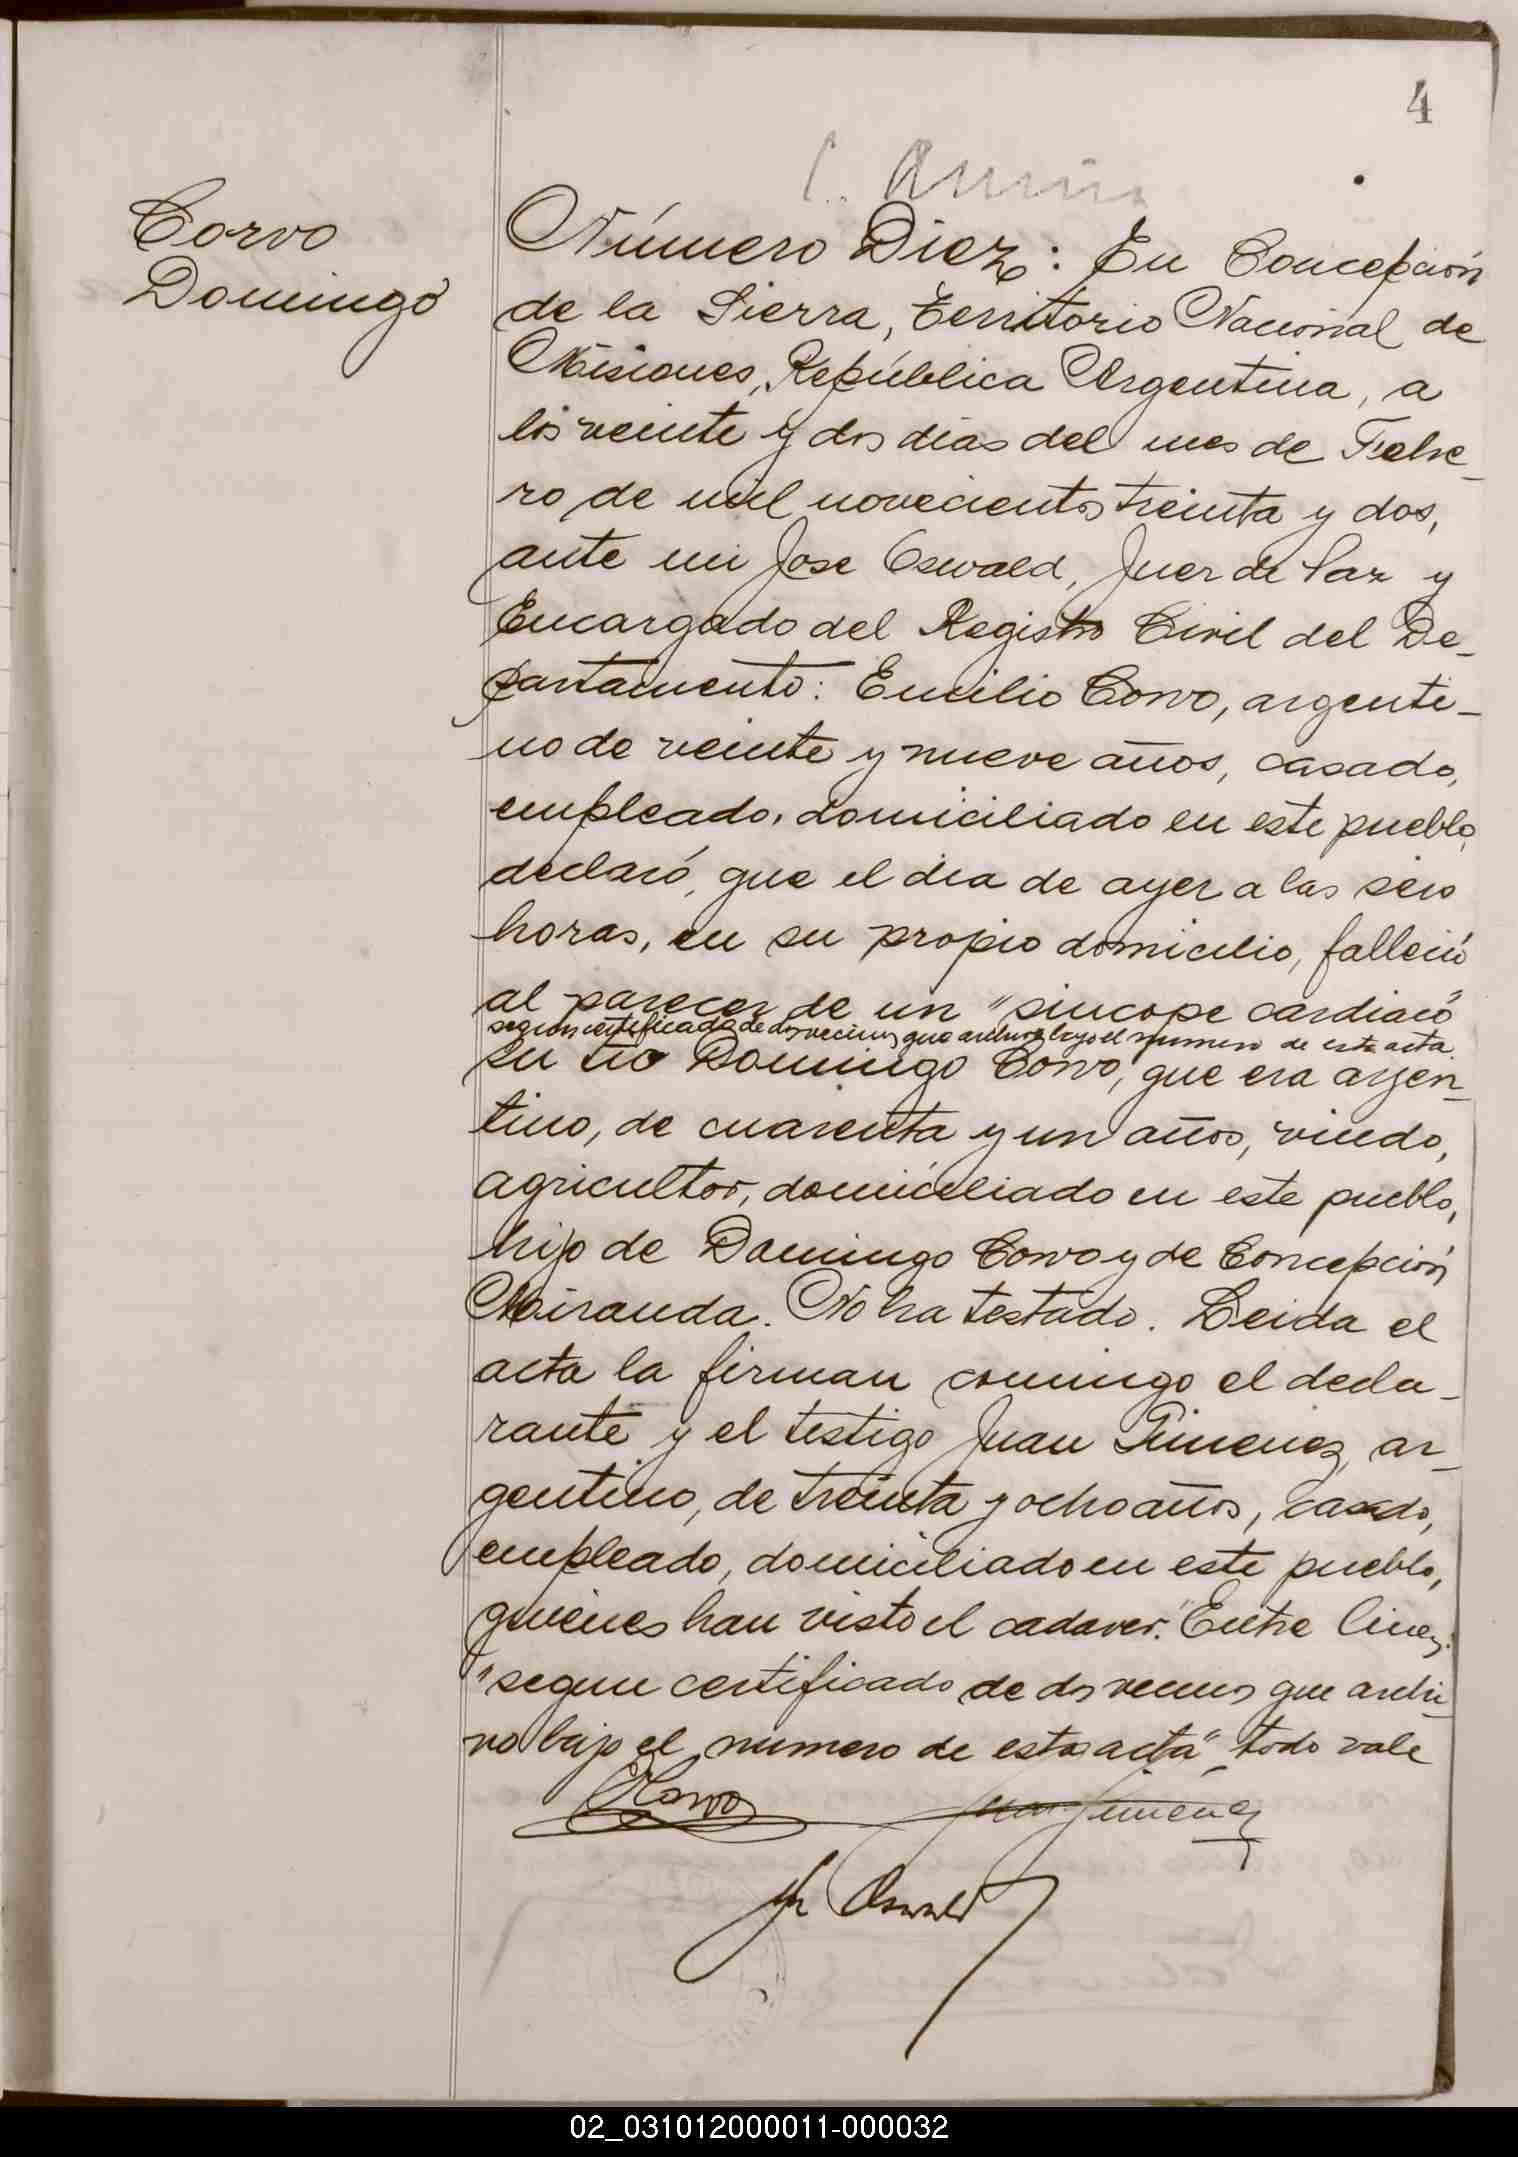 4
Corvo
Domingo
Número Diez: En Concepción
de la Sierra, Territorio Nacional de
Misiones, República Argentina, a
los veinte y dos dias del mes de Febre-
ro de mil novecientos treinta y dos,
ante mi Jose Oswald, Juez de Paz y
Encargado del Registro Civil del De-
partamento: Emilio Corvo, argenti-
no de veinte y nueve años, casado,
empleado, domiciliado en este pueblo,
declaró, que el dia de ayer a las seis
horas, en su propio domicilio, falleció
al parecer de un "sincope cardiaco"
segun certificado de dos vecinos que archivo bajo el numero de esta acta
su tio Domingo Corvo, que era argen-
tino, de cuarenta y un años, viudo,
agricultor, domiciliado en este pueblo,
hijo de Domingo Corvo y de Concepción
Miranda. No ha testado. Leida el
acta la firman conmigo el decla-
rante y el testigo Juan Gimenez, ar-
gentino, de treinta y ocho años, casado,
empleado, domiciliado en este pueblo,
quienes han visto el cadaver. Entre lineas:
"segun certificado de dos vecinos que archi-
vo bajo el numero de esta acta", todo vale
ECorvo
Juan Gimenez
Oswald
02_031012000011-000032